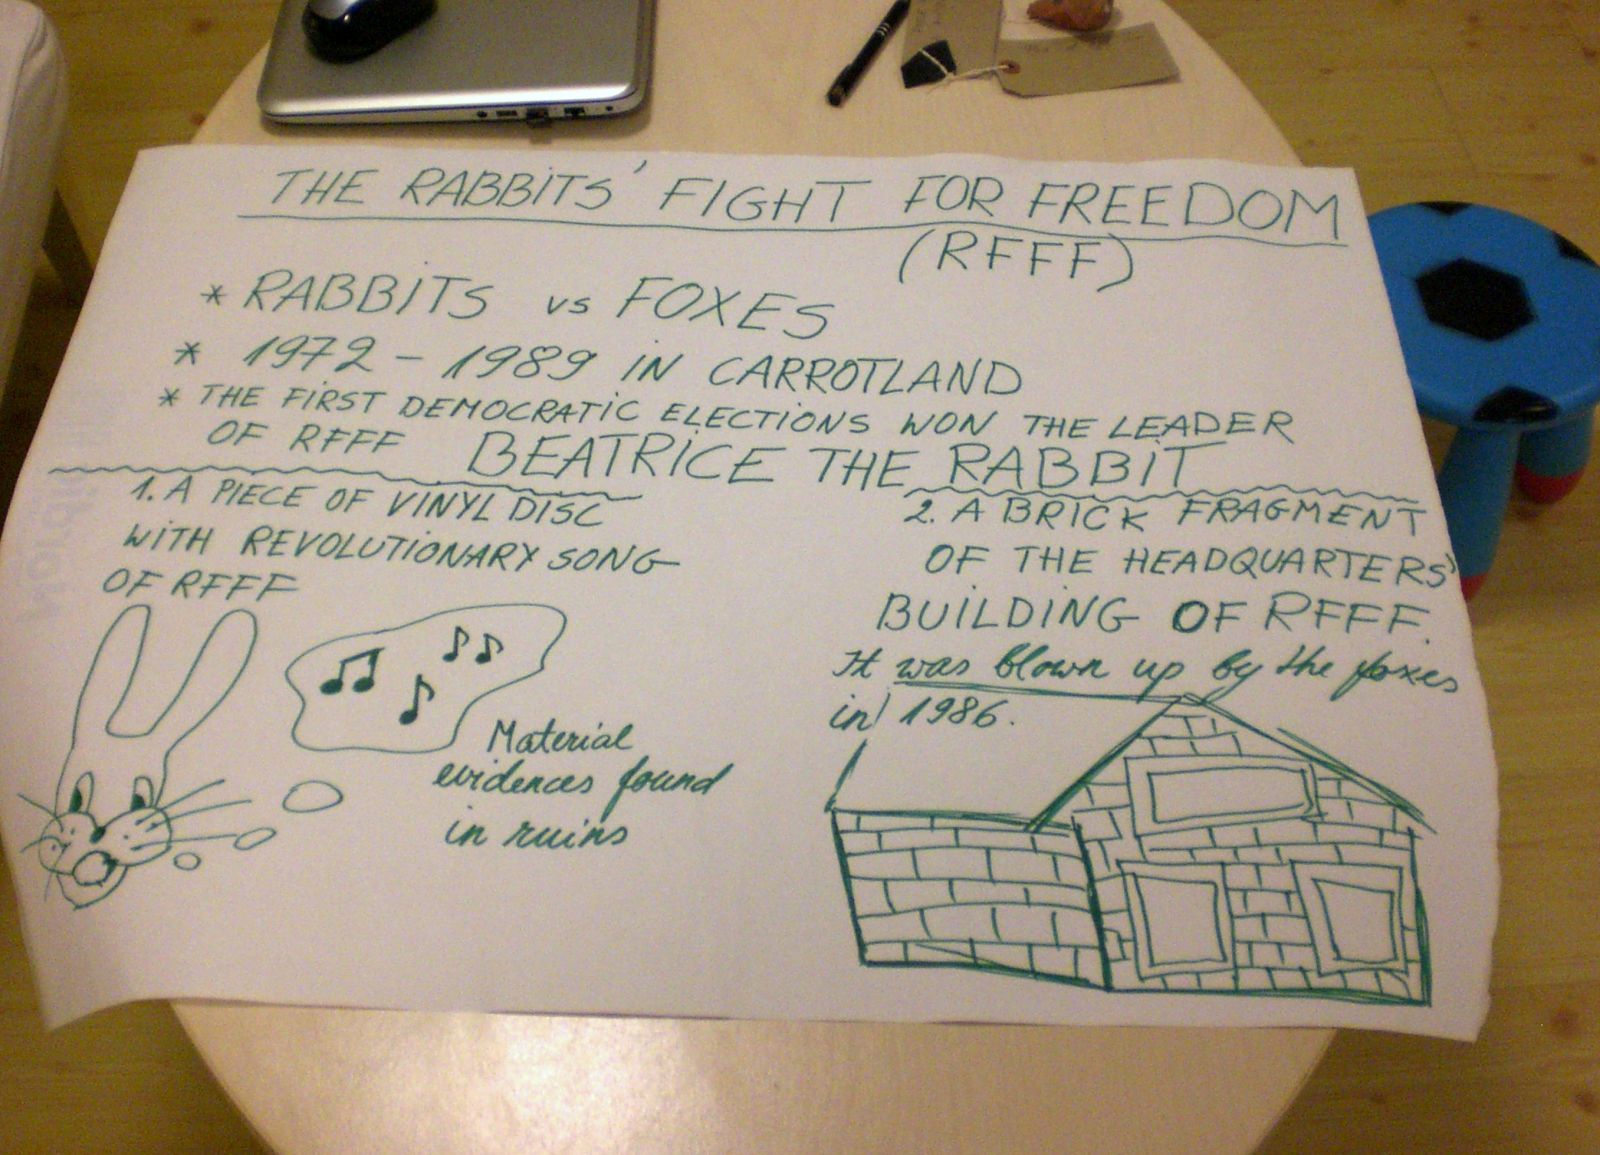 THE RABBITS' FIGHT FOR FREEDOM
(RFFF)
* RABBITS vs FOXES
* 1972 - 1989 IN CARROTLAND
* THE FIRST DEMOCRATIC ELECTIONS WON THE LEADER
OF RFFF BEATRICE THE RABBIT
1. A PIECE OF VINYL DISC
WITH REVOLUTIONARY SONG
OF RFFF
Material
evidences found
in ruins
2. A BRICK FRAGMENT
OF THE HEADQUARTERS'
BUILDING OF RFFF.
It was blown up by the foxes
in 1986.